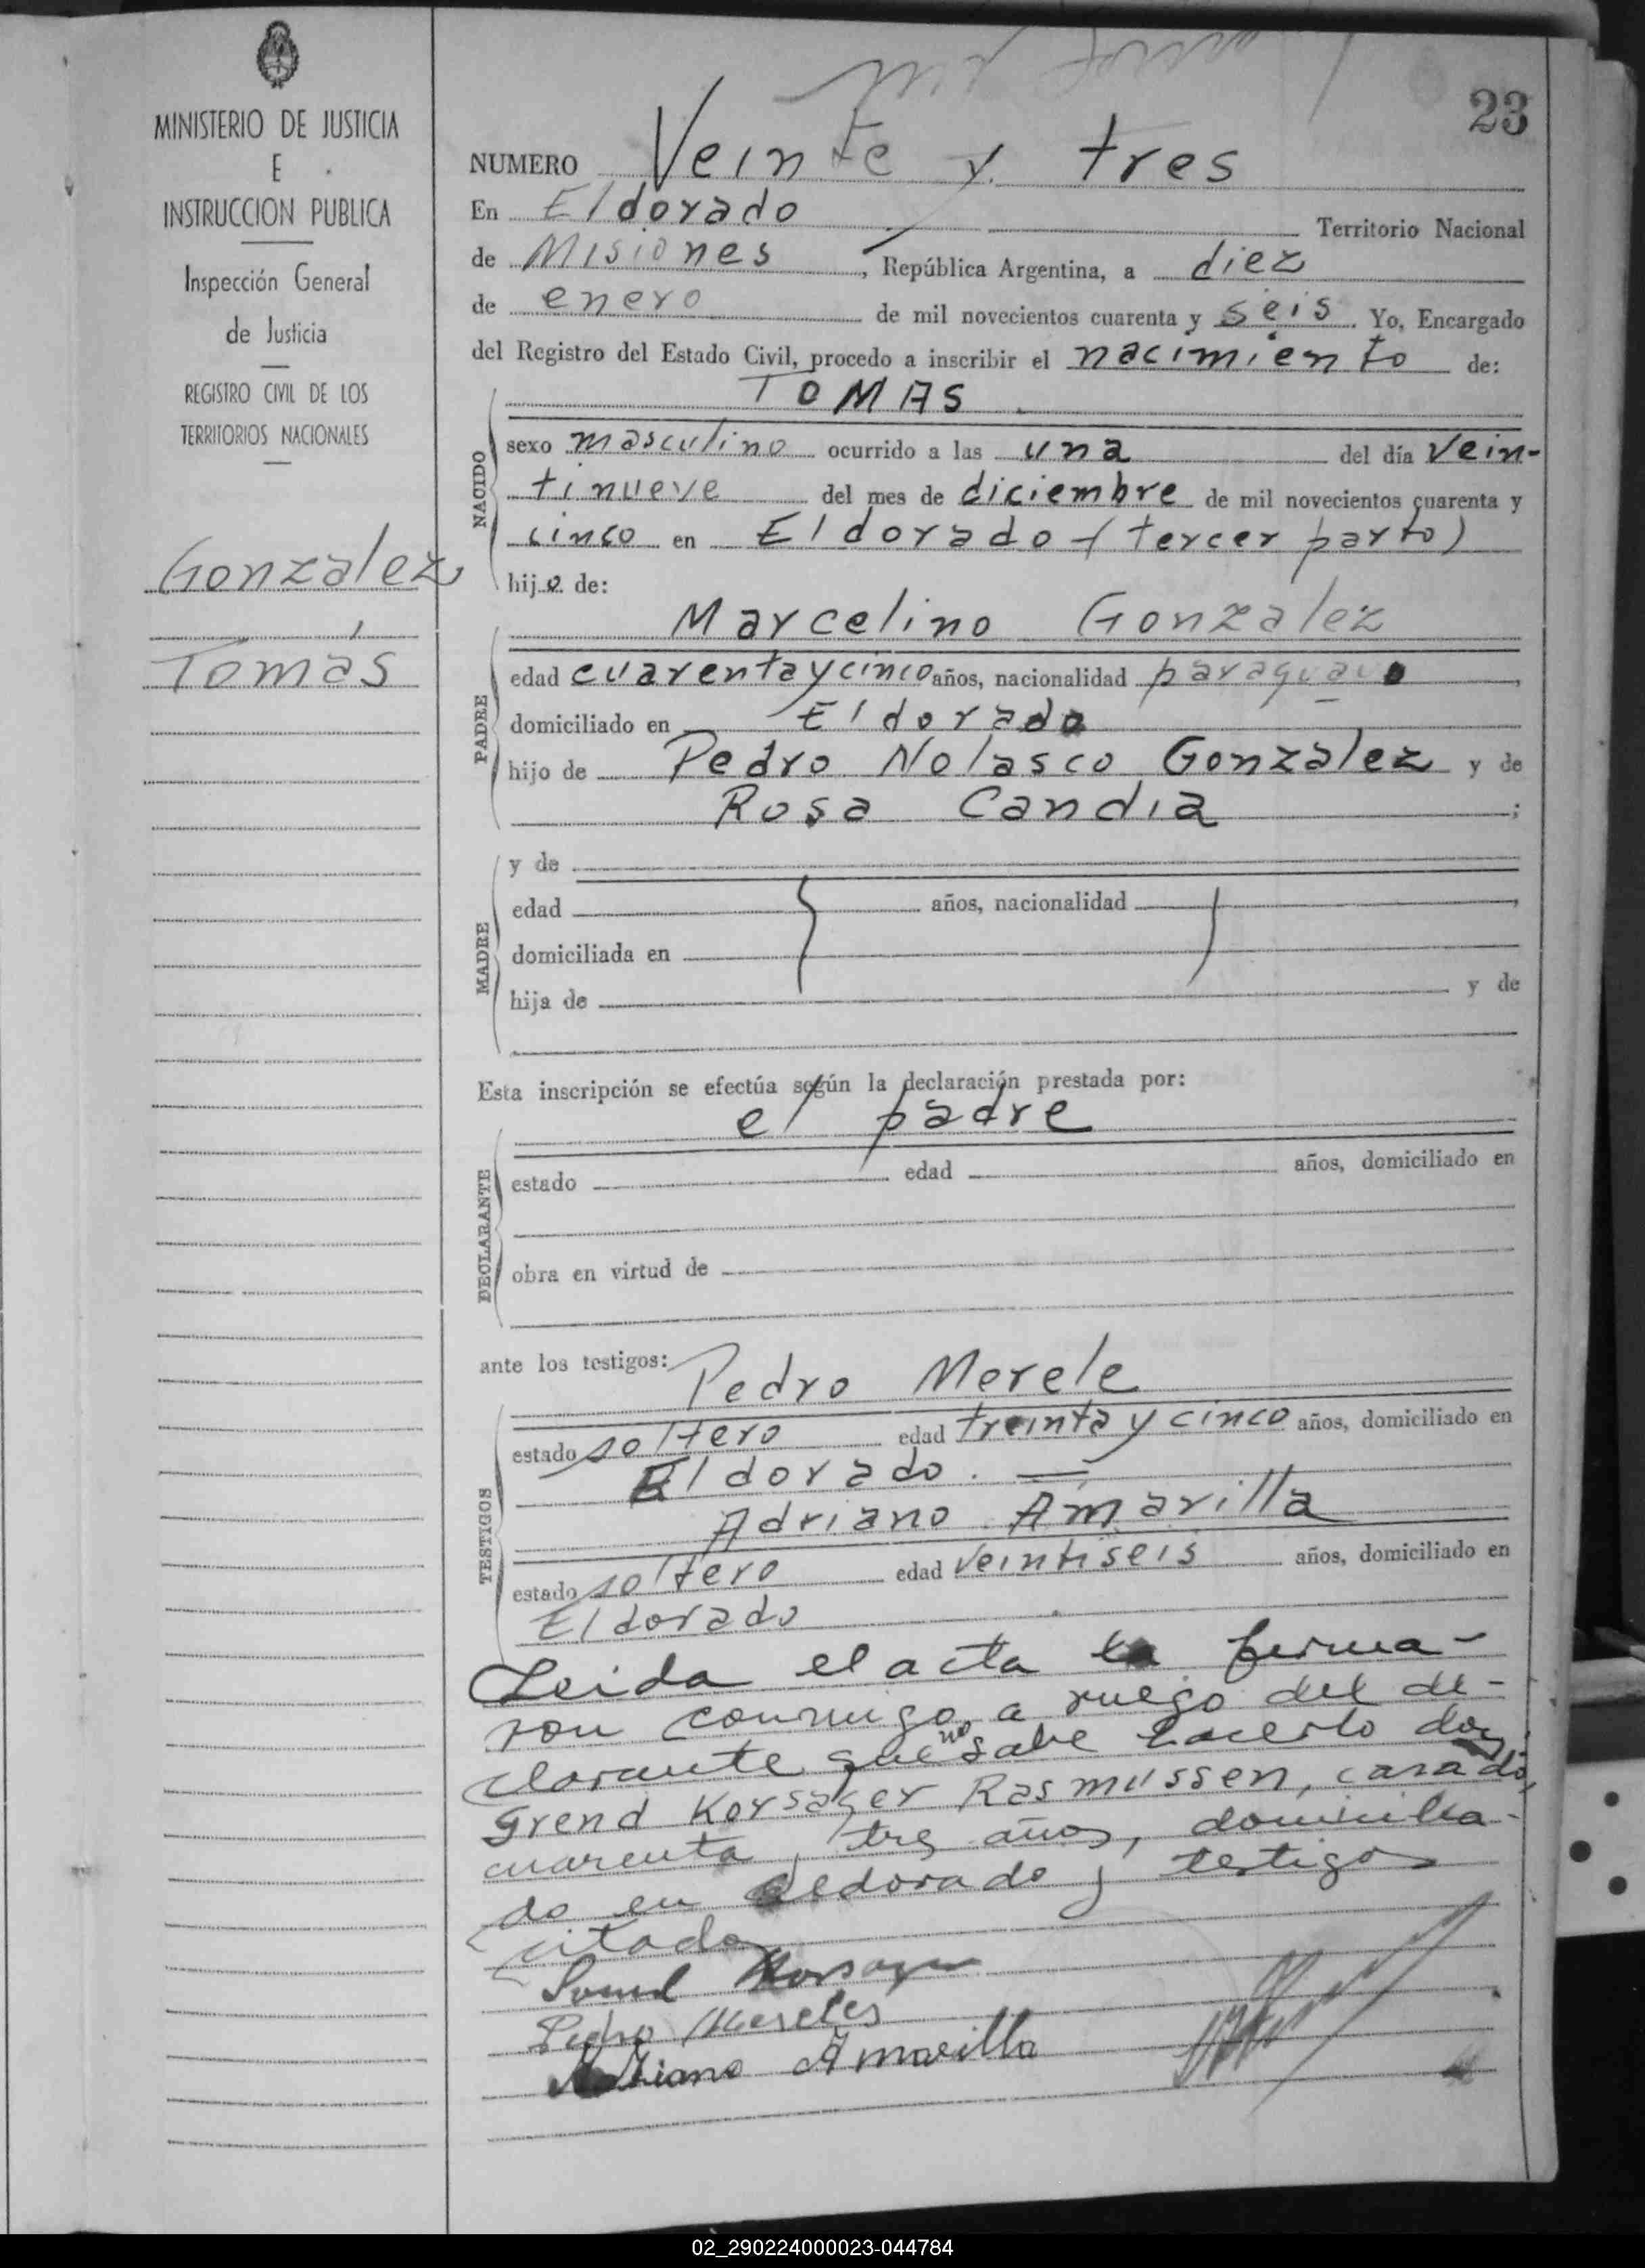 23
MINISTERIO DE JUSTICIA
E
INSTRUCCION PUBLICA
Inspección General
de Justicia
REGISTRO CIVIL DE LOS
TERRITORIOS NACIONALES
Gonzalez
Tomás
NUMERO Veinte y tres
En Eldorado Territorio Nacional
de Misiones, República Argentina, a diez
de enero de mil novecientos cuarenta y seis. Yo, Encargado
del Registro del Estado Civil, procedo a inscribir el nacimiento de:
TOMAS
NACIDO
sexo masculino ocurrido a las una del día vein-
tinueve del mes de diciembre de mil novecientos cuarenta y
cinco en Eldorado (tercer parto)
hijo de:
Marcelino Gonzalez
PADRE
edad cuarenta y cinco años, nacionalidad paraguayo,
domiciliado en Eldorado
hijo de Pedro Nolasco Gonzalez y de
Rosa Candia;
MADRE
y de
edad años, nacionalidad,
domiciliada en
hija de y de
Esta inscripción se efectúa según la declaración prestada por:
el padre
DECLARANTE
estado edad años, domiciliado en
obra en virtud de
ante los testigos: Pedro Merele
TESTIGOS
estado soltero edad treinta y cinco años, domiciliado en
Eldorado. —
Adriano Amarilla
estado soltero edad veintiseis años, domiciliado en
Eldorado
Leida el acta la firma-
ron conmigo, a ruego del de-
clarante que no sabe hacerlo don
Korsager Rasmussen, casado,
cuarenta y tres años, domicilia-
do en Eldorado y testigos
citados
Korsager
Pedro Mereles
Adriano Amarilla
02_290224000023-044784